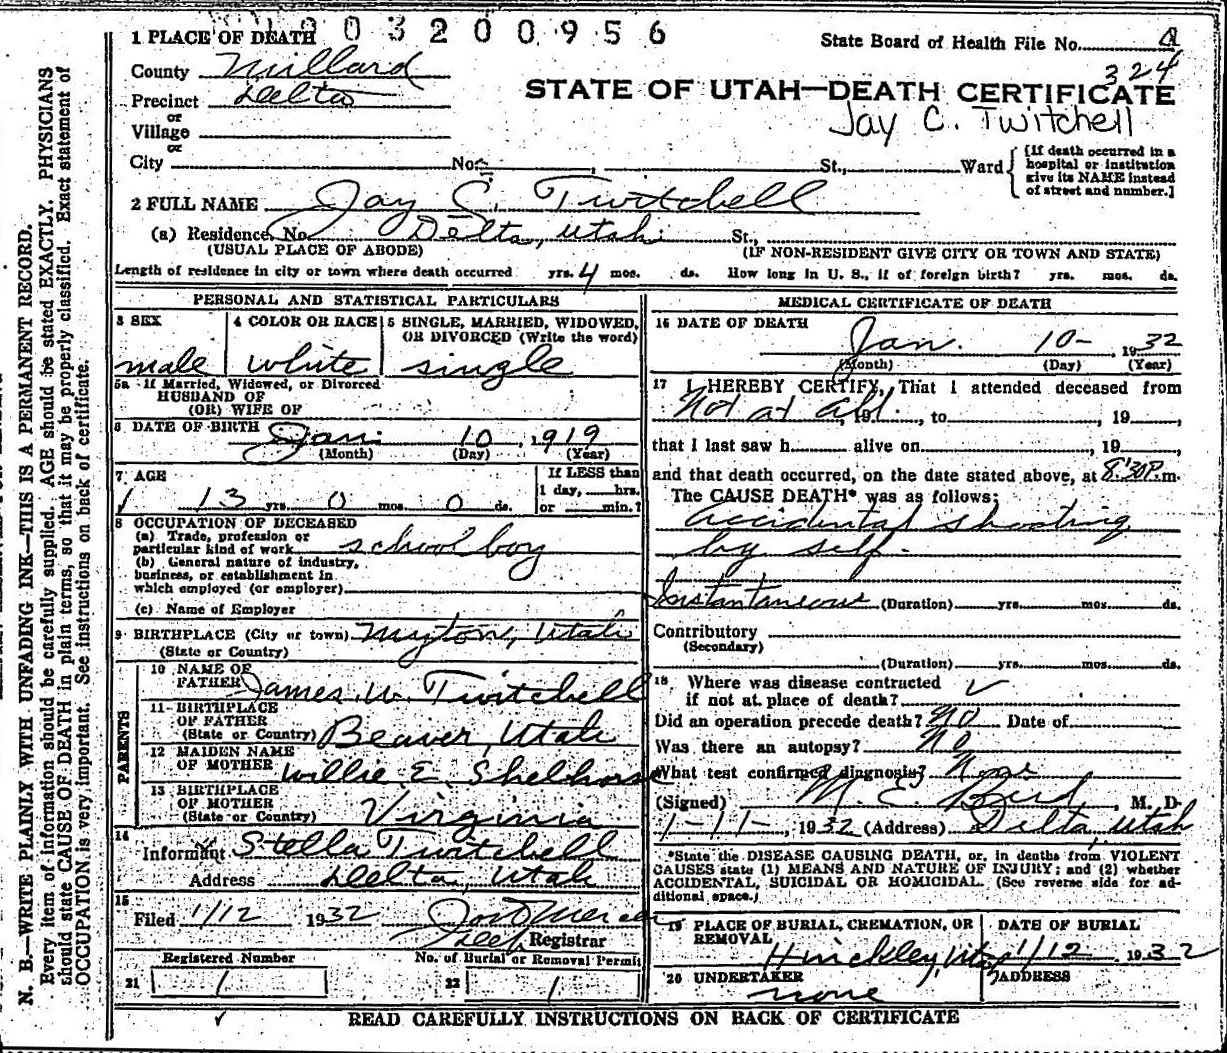 0 3 2 0 0 9 5 6
1 PLACE OF DEATH
State Board of Health File No. 324
County Millard
Precinct Delta
STATE OF UTAH—DEATH CERTIFICATE
or
Village
Jay C. Twitchell
or
City No. St., Ward
{If death occurred in a hospital or institution give its NAME instead of street and number.]
2 FULL NAME Jay C. Twitchell
(a) Residence. No. Delta, Utah St.,
(USUAL PLACE OF ABODE) (IF NON-RESIDENT GIVE CITY OR TOWN AND STATE)
Length of residence in city or town where death occurred yrs. 4 mos. ds. How long in U. S., if of foreign birth? yrs. mos. ds.
PERSONAL AND STATISTICAL PARTICULARS
3 SEX male
4 COLOR OR RACE white
5 SINGLE, MARRIED, WIDOWED, OR DIVORCED (Write the word) single
5a If Married, Widowed, or Divorced
HUSBAND OF
(OR) WIFE OF
6 DATE OF BIRTH Jan. 10, 1919
(Month) (Day) (Year)
7 AGE 13 yrs. 0 mos. 0 ds.
If LESS than
1 day, hrs.
or min.?
8 OCCUPATION OF DECEASED
(a) Trade, profession or
particular kind of work school boy
(b) General nature of industry,
business, or establishment in
which employed (or employer)
(c) Name of Employer
9 BIRTHPLACE (City or town) Myton, Utah
(State or Country)
PARENTS
10 NAME OF FATHER James W. Twitchell
11 BIRTHPLACE OF FATHER
(State or Country) Beaver, Utah
12 MAIDEN NAME OF MOTHER Willie E.
13 BIRTHPLACE OF MOTHER
(State or Country) Virginia
14 Informant Stella Twitchell
Address Delta, Utah
15 Filed 1/12 1932
Registrar
Registered Number No. of Burial or Removal Permit
21 1 22 1
MEDICAL CERTIFICATE OF DEATH
16 DATE OF DEATH
Jan. 10-, 1932
(Month) (Day) (Year)
17 I HEREBY CERTIFY, That I attended deceased from
Not at all, 19, to, 19,
that I last saw h alive on, 19
and that death occurred, on the date stated above, at 8:30 P.m.
The CAUSE DEATH* was as follows:
Accidental shooting
by self.
Instantaneous (Duration) yrs. mos. ds.
Contributory
(Secondary)
(Duration) yrs. mos. ds.
18 Where was disease contracted
if not at place of death?
Did an operation precede death? No Date of
Was there an autopsy? No
What test confirmed diagnosis? None
(Signed) M. E. Bird, M. D.
1-11-, 1932 (Address) Delta, Utah
*State the DISEASE CAUSING DEATH, or, in deaths from VIOLENT
CAUSES state (1) MEANS AND NATURE OF INJURY; and (2) whether
ACCIDENTAL, SUICIDAL OR HOMICIDAL. (See reverse side for ad-
ditional space.)
19 PLACE OF BURIAL, CREMATION, OR REMOVAL Hinckley, Utah
DATE OF BURIAL 1/12, 1932
20 UNDERTAKER none
ADDRESS
READ CAREFULLY INSTRUCTIONS ON BACK OF CERTIFICATE
N. B.—WRITE PLAINLY WITH UNFADING INK—THIS IS A PERMANENT RECORD.
Every item of information should be carefully supplied. AGE should be stated EXACTLY. PHYSICIANS
should state CAUSE OF DEATH in plain terms, so that it may be properly classified. Exact statement of
OCCUPATION is very important. See instructions on back of certificate.